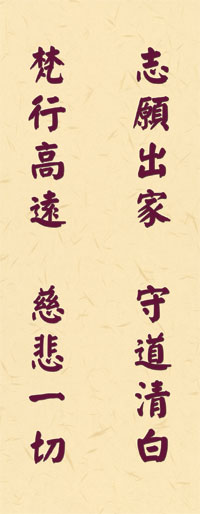 志願出家　守道清白
梵行高遠　慈悲一切